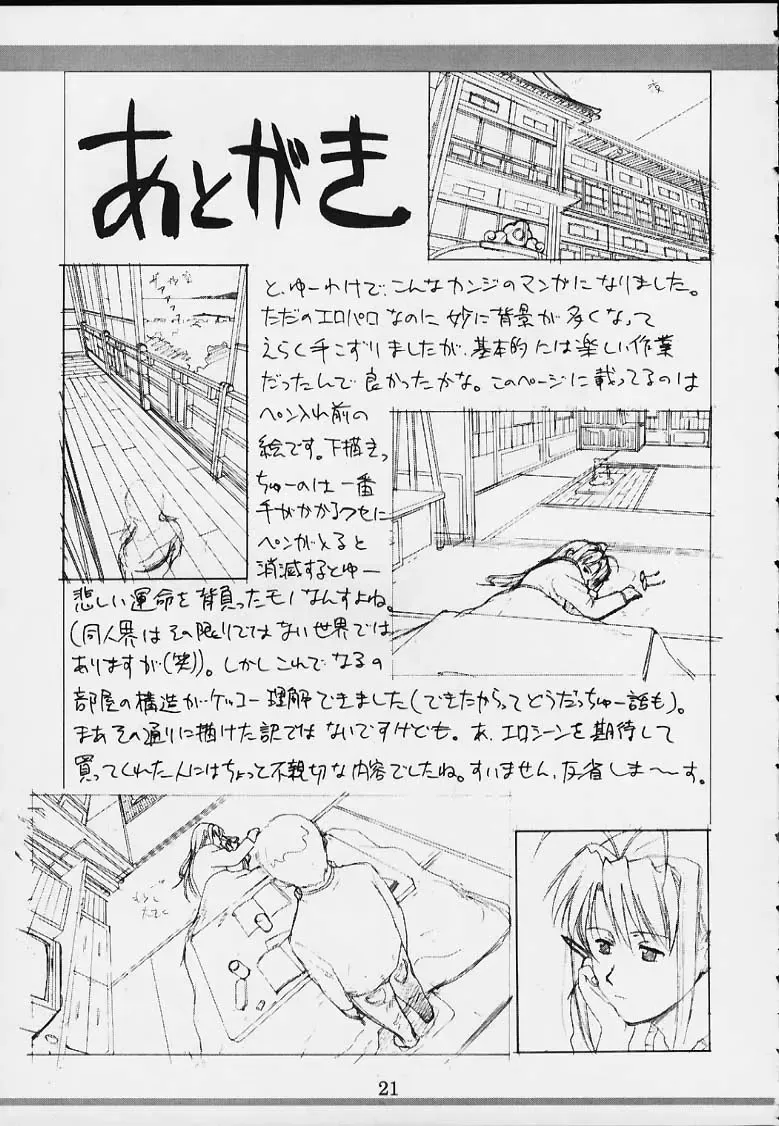 あとがき
夜
ザァァァ
と、ゆーわけで、こんなカンジのマンガになりました。
ただのエロパロなのに妙に背景が多くなって
えらく手こずりましたが、基本的には楽しい作業
だったんで良かったかな。このページに載ってるのは
ペン入れ前の
絵です。下描きっ
ちゅーのは一番
手がかかるクセに
ペンが入ると
消滅するとゆー
悲しい運命を背負ったモノなんすよね。
(同人界はその限りではない世界では
ありますが(笑))。しかしこれでなるの
部屋の構造がケッコー理解できました(できたからってどうだっちゅー話も)。
まあその通りに描けた訳ではないですけども。あ、エロシーンを期待して
買ってくれた人にはちょっと不親切な内容でしたね。すいません、反省しま〜す。
21